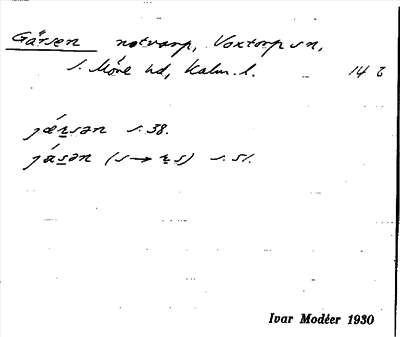 Gåsen notvarp, Voxtorp sn,
S. Möre hd, Kalm. l. 14 č
s. 38.
jåsən (s → ꭇ s) s. 51.
Ivar Modéer 1930